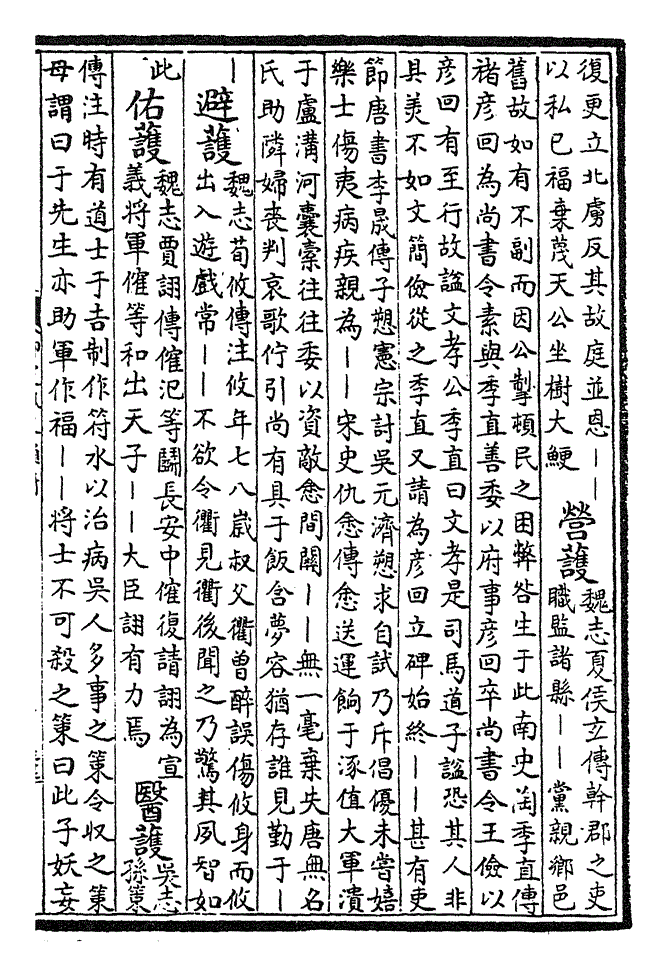 復更立北虜反其故庭並恩――
以私已福棄蔑天公坐樹大鯁
營護
魏志夏侯玄傳幹郡之吏
職監諸縣――黨親鄉邑
舊故如有不副而因公掣頓民之困弊咎生于此南史陶季直傳
褚彥回為尚書令素與季直善委以府事彥回卒尚書令王儉以
彥回有至行故謚文孝公季直曰文孝是司馬道子謚恐其人非
具美不如文簡儉從之季直又請為彥回立碑始終――甚有吏
節唐書李晟傳子愬憲宗討吳元濟愬求自試乃斥倡優未嘗嬉
樂士傷夷病疾親為――宋史仇悆傳悆送運餉于涿值大軍潰
于盧溝河囊橐往往委以資敵悆間關――無一毫棄失唐無名
氏助隣婦喪判哀歌佇引尚有具于飯含夢容猶存誰見勤于―
―
避護
魏志荀攸傳注攸年七八歲叔父衢曾醉誤傷攸身而攸
出入遊戲常――不欲令衢見衢後聞之乃驚其夙智如
此
佑護
魏志賈詡傳傕汜等鬬長安中傕復請詡為宣
義將軍傕等和出天子――大臣詡有力焉
醫護
吳志
孫策
傳注時有道士于吉制作符水以治病吳人多事之策令收之策
母謂曰于先生亦助軍作福――將士不可殺之策曰此子妖妄